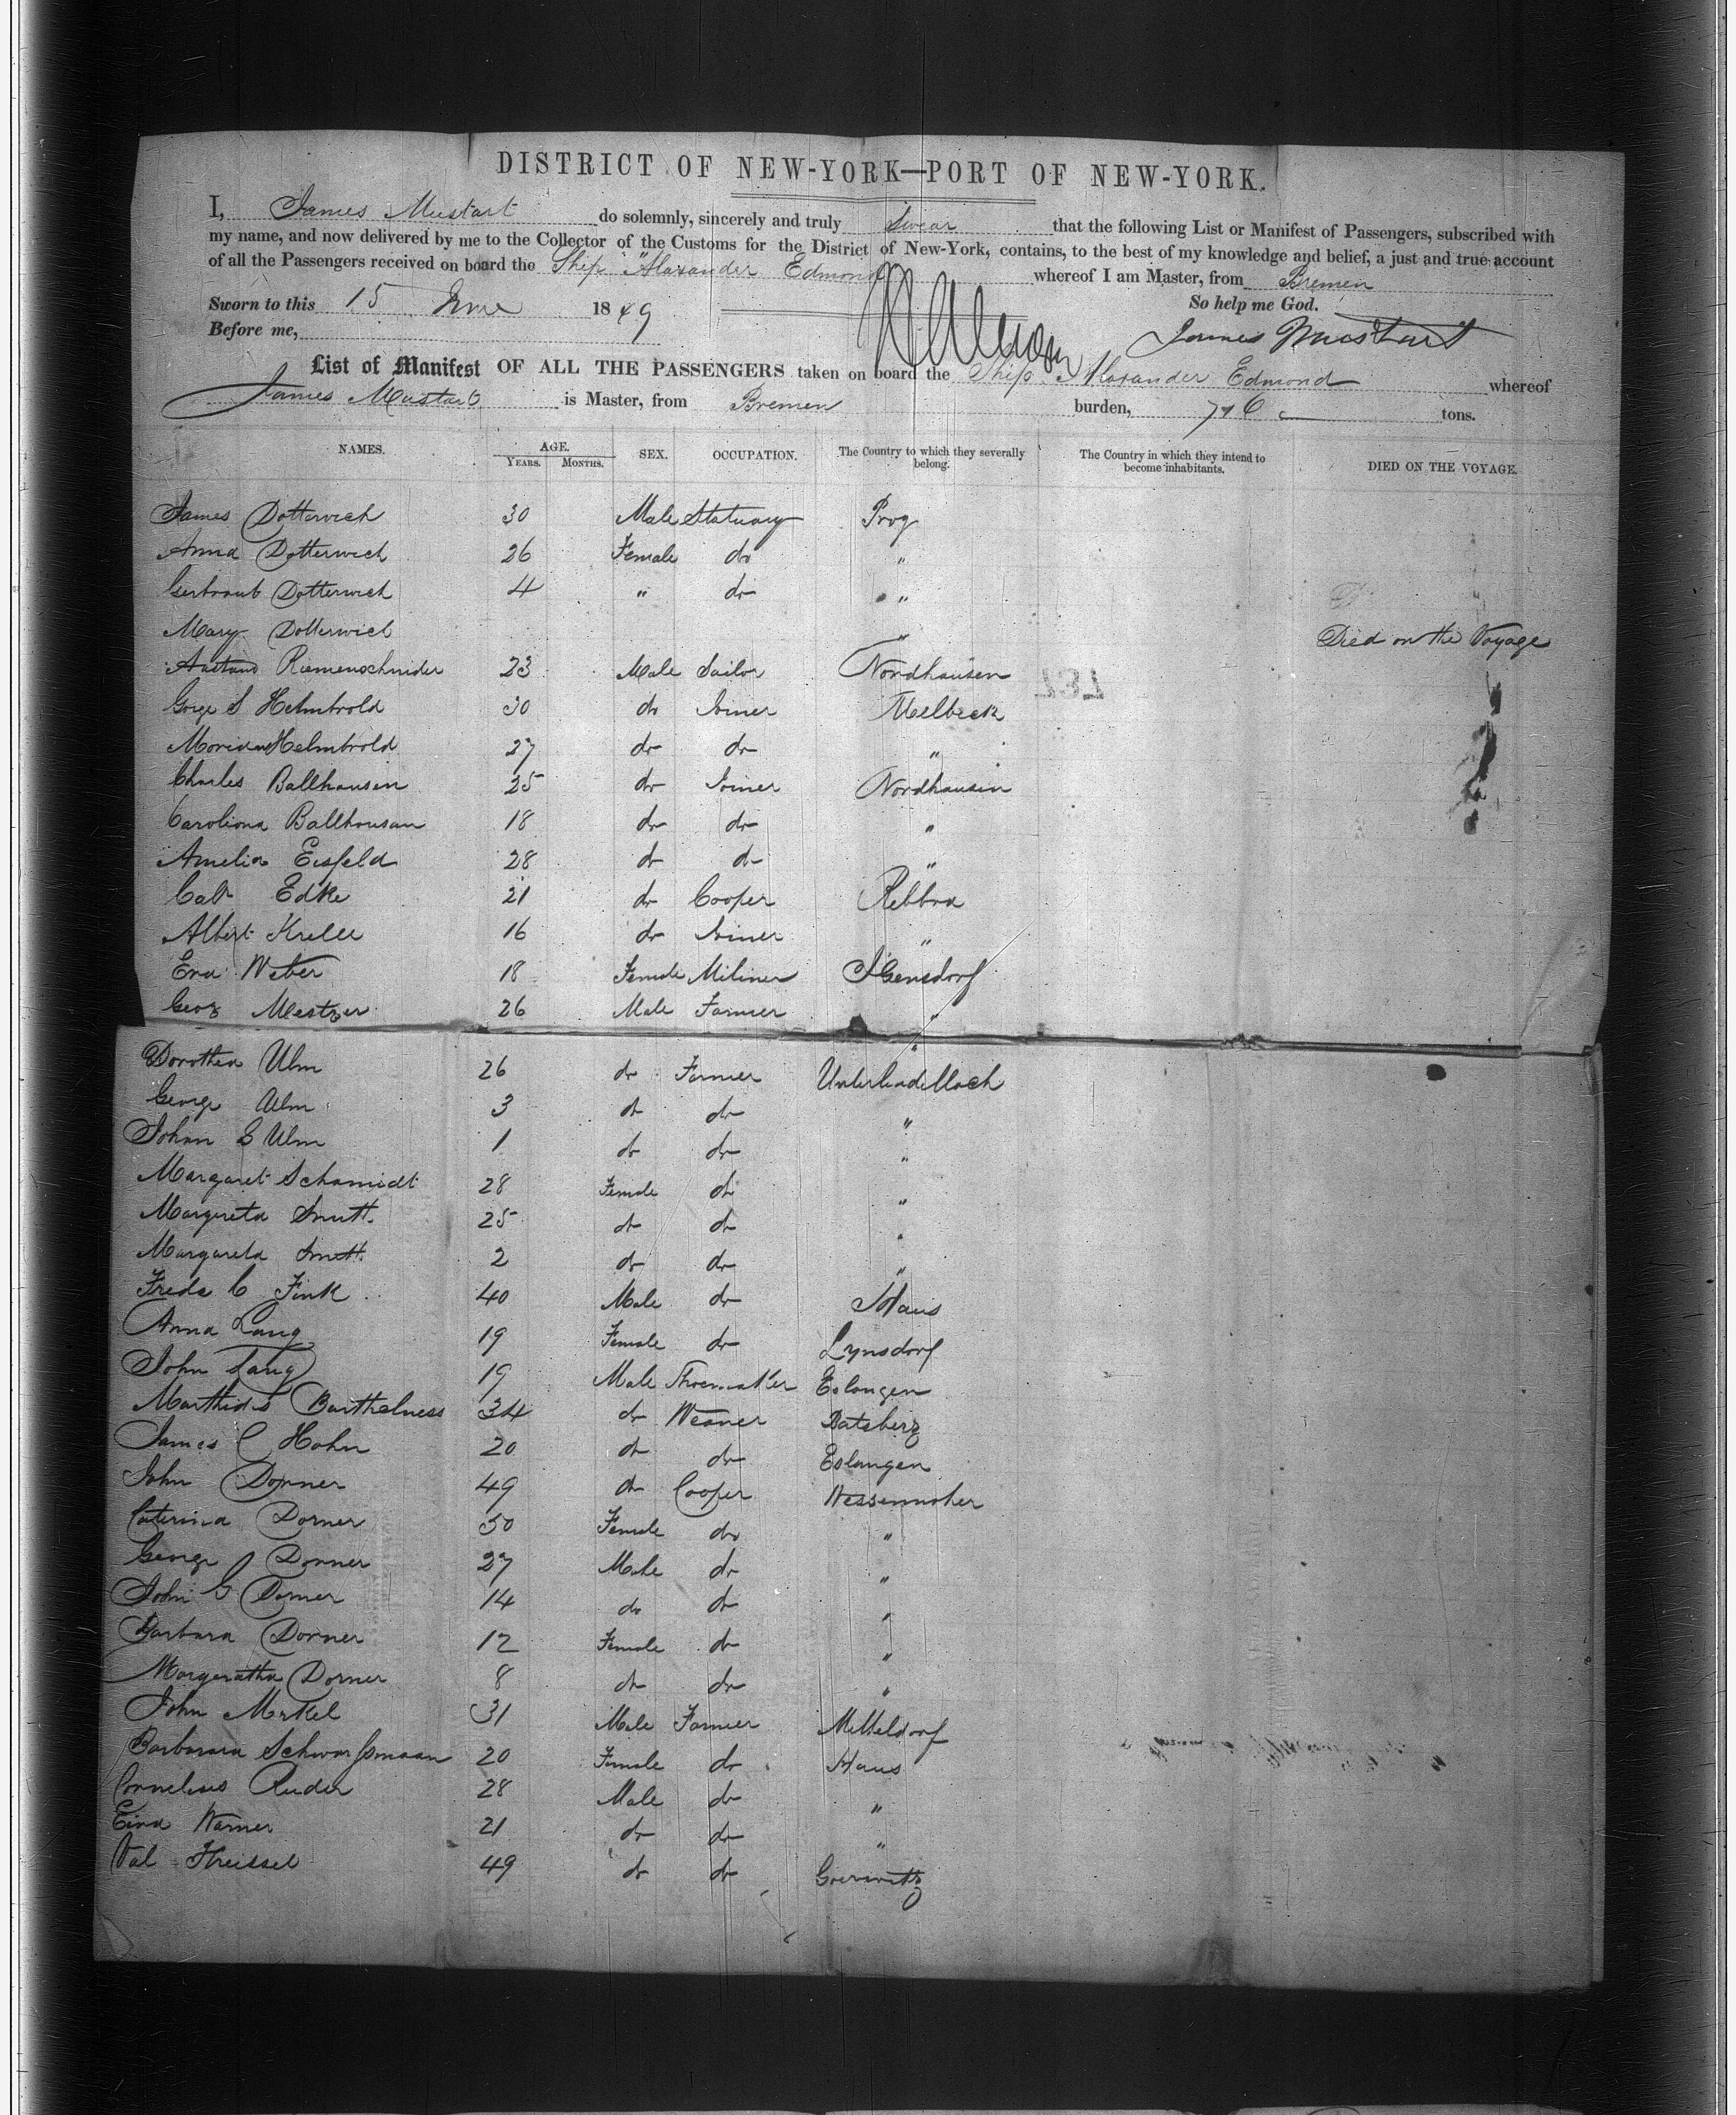 DISTRICT OF NEW-YORK—PORT OF NEW-YORK.
I, James Mustart do solemnly, sincerely and truly Swear that the following List or Manifest of Passengers, subscribed with
my name, and now delivered by me to the Collector of the Customs for the District of New-York, contains, to the best of my knowledge and belief, a just and true account
of all the Passengers received on board the Ship "Alexander Edmond whereof I am Master, from Bremen
Sworn to this 15 June 1849 So help me God.
Before me, James Musthart
List of Manifest OF ALL THE PASSENGERS taken on board the Ship Alexander Edmond whereof
James Mustart is Master, from Bremen burden, tons.
NAMES. AGE. YEARS. MONTHS. SEX. OCCUPATION. The Country to which they severally belong. The Country in which they intend to become inhabitants. DIED ON THE VOYAGE.
James Dotterwich 30 Male Statuary Prog
Anna Dotterwich 26 Female do "
Gertraut Dotterwich 4 " do "
Mary Dotterwich " Died on the Voyage
Riemenschneider 23 Male Sailor Nordhausen
Gorge S Helmbrold 30 do Joiner Melbeck
Helmbrold 27 do do "
Charles Ballhausen 25 do Joiner Nordhausen
Caroliona Ballhousan 18 do do "
Amelia Eisfeld 28 do do "
Calv Edke 21 do Cooper Rebbra
Albert Krelle 16 do Joiner "
Eva Weber 18 Female Miliner Igensdorf
Georg Mestzer 26 Male Farmer "
Dorothea Ulm 26 do Farmer
George Ulm 3 do do "
Johan G Ulm 1 do do "
Margaret Schamidt 28 Female do "
Margareta Smitt 25 do do "
Margareta Smitt 2 do do "
Freds C Fink 40 Male do Haus
Anna Lang 19 Female do Lynsdorf
John Lang 19 Male Shoemaker Eslangen
Marthides Barthelness 34 do Weaver Datsberg
James C Hohn 20 do do Eslangen
John Dorner 49 do Cooper Wessenmoher
Caterina Dorner 50 Female do "
George Dorner 27 Male do "
John G Dorner 14 do do "
Barbara Dorner 12 Female do "
Margeratha Dorner 8 do do "
John Merkel 31 Male Farmer Mitteldorf
Barbarara Schwarssmaan 20 Female do Haus
Cornelius Ruder 28 Male do "
Eina Warner 21 do do "
Val Threissel 49 do do Goerwitz